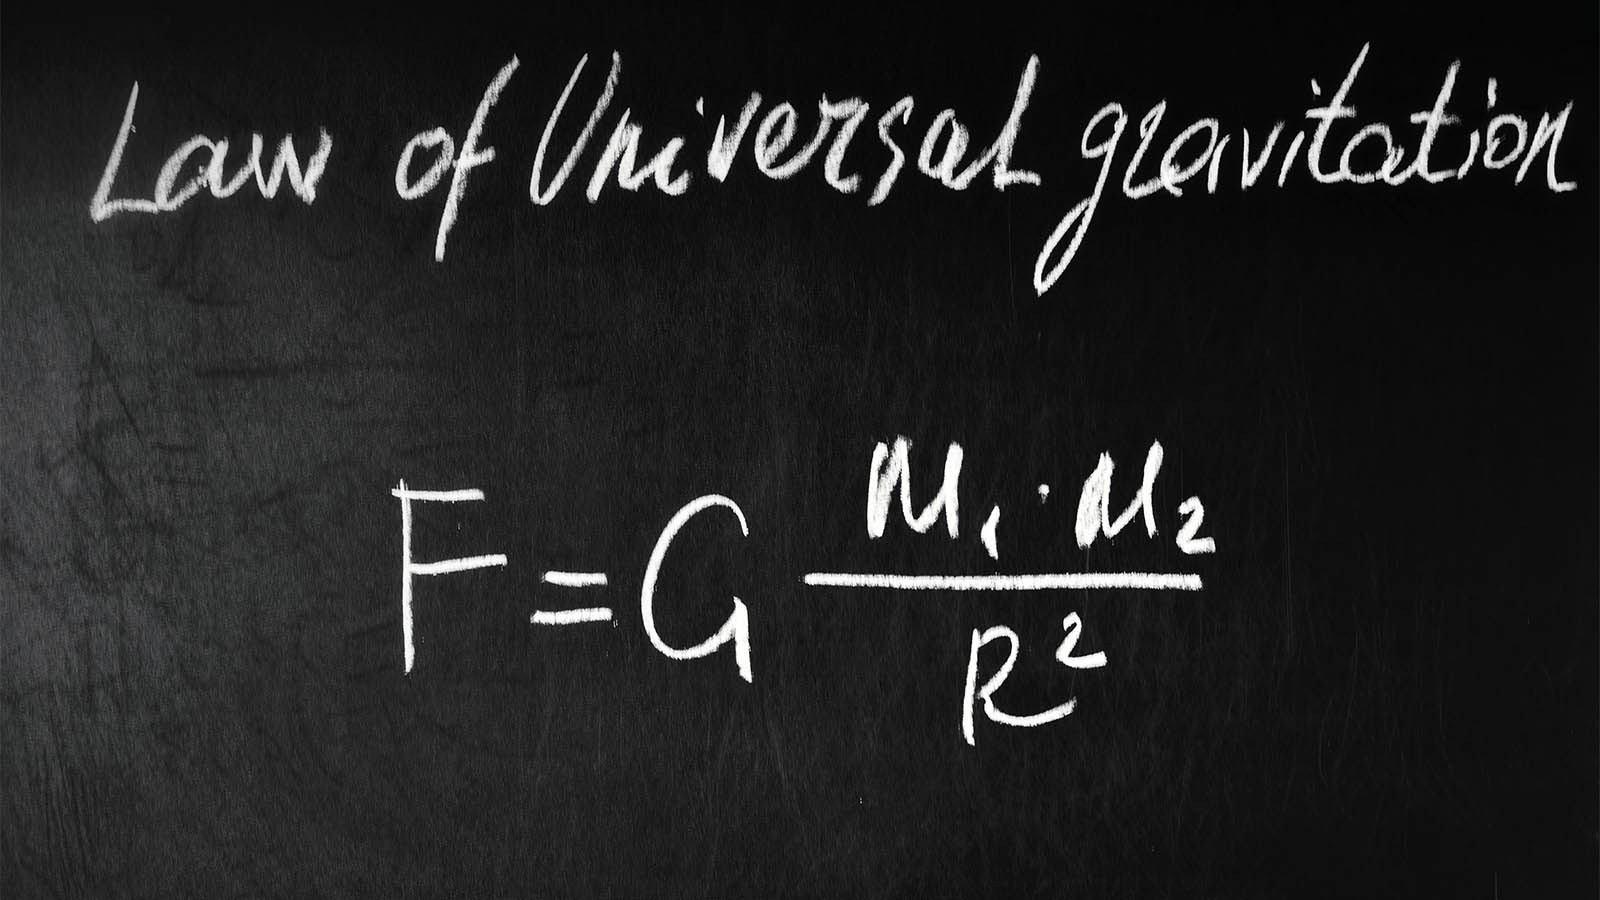 Law of Universal gravitation
F = G M₁ · M₂ / R²